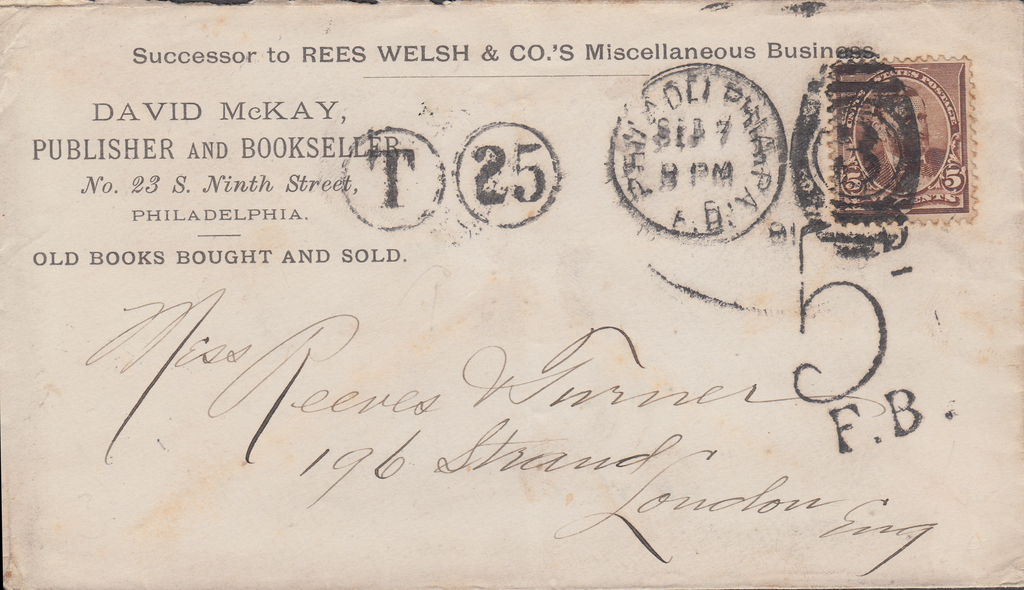 Successor to REES WELSH & CO.'S Miscellaneous Business.
DAVID McKAY,
PUBLISHER AND BOOKSELLER,
No. 23 S. Ninth Street,
PHILADELPHIA.
OLD BOOKS BOUGHT AND SOLD.
T
25
PHILADELPHIA PA
SEP 7
8 PM
STATES POSTAGE
5 5
CENTS
5
F.B.
Mess
Reeves & Turner
196 Strand
London
Eng